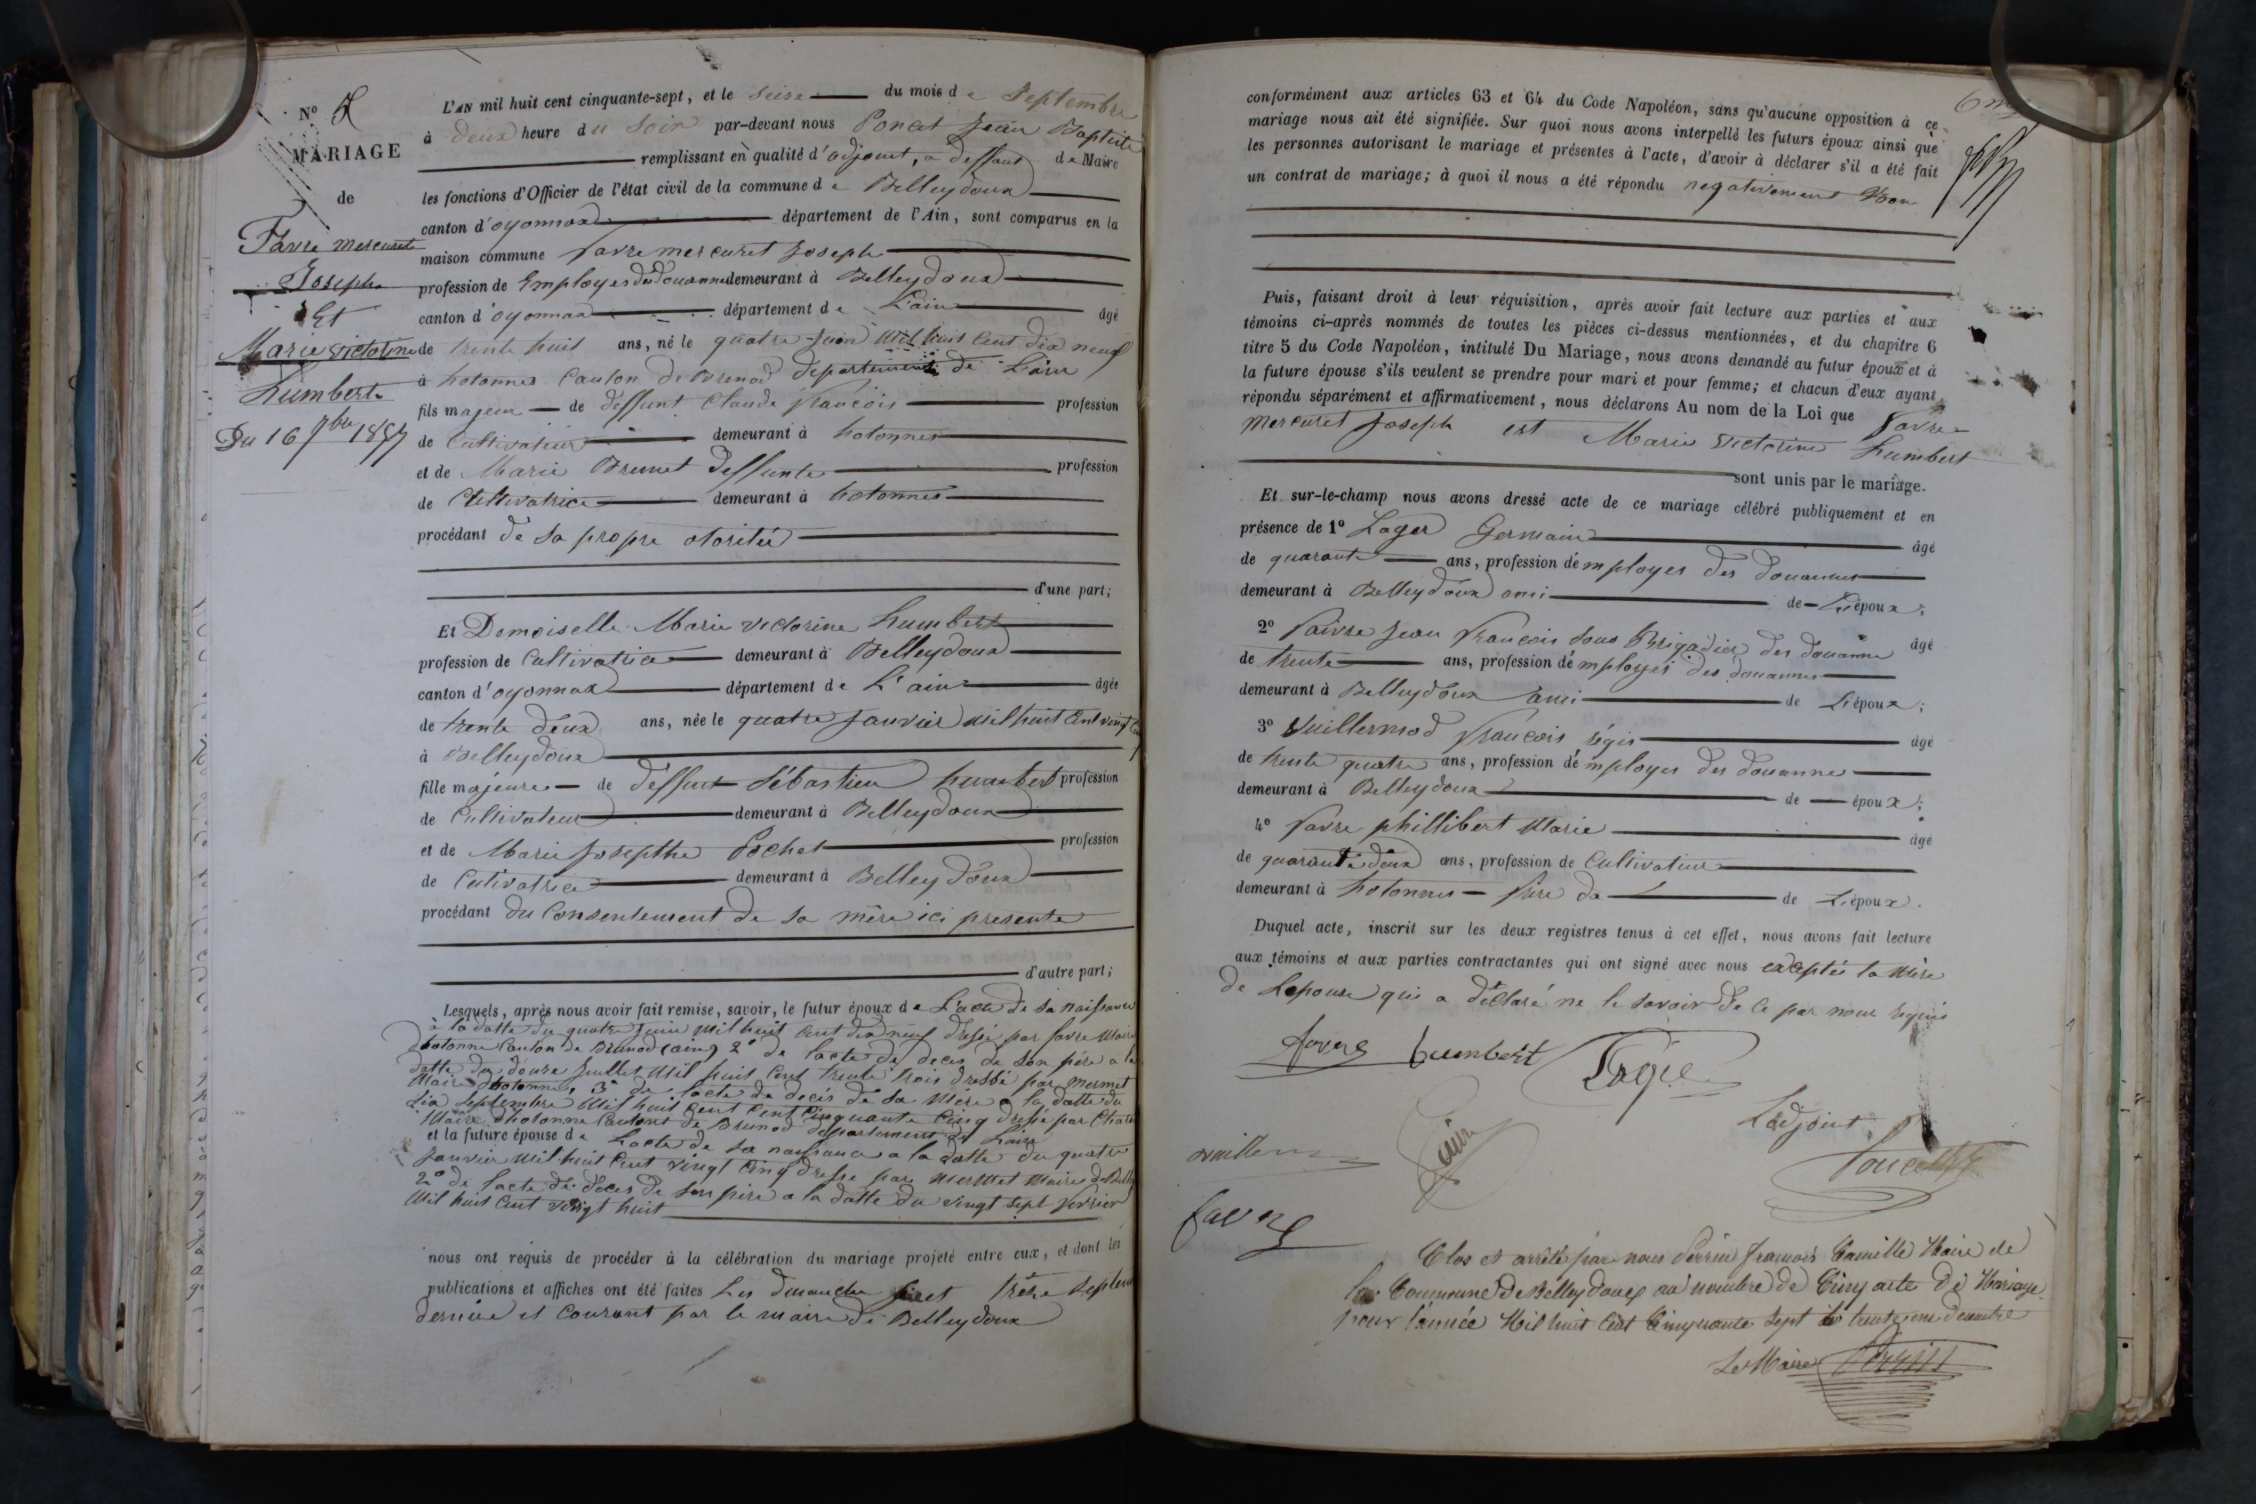 N° 5
MARIAGE
de
Favre mercuret
Joseph
Et
Marie victorine
humbert
Du 16 7bre 1857
L'AN mil huit cent cinquante-sept, et le seize du mois de Septembre
à deux heure du soir par-devant nous Poncet Jean Baptiste
remplissant en qualité d'adjoint, a deffaut de Maire
les fonctions d'Officier de l'état civil de la commune de Belleydoux
canton d'oyonnax département de l'Ain, sont comparus en la
maison commune favre mercuret Joseph
profession de Employes des douannes demeurant à Belleydoux
canton d'oyonnax département de L'ain âgé
de trente huit ans, né le quatre Juin Mil huit Cent dix neuf
à hotonnes Canton de Brenod département de L'ain
fils majeur de deffunt Claude francois profession
de Cultivateur demeurant à hotonnes
et de Marie Brunet deffunte profession
de Cultivatrice demeurant à hotonnes
procédant de sa propre otoritée
d'une part;
Et Demoiselle Marie victorine humbert
profession de Cultivatrice demeurant à Belleydoux
canton d'oyonnax département de L'ain âgée
de trente deux ans, née le quatre Janvier mil huit Cent vingt Cinq
à Belleydoux
fille majeure de deffunt Sébastien humbert profession
de Cultivateur demeurant à Belleydoux
et de Marie Josepthe Pochet profession
de Cultivatrice demeurant à Belleydoux
procédant du Consentement de sa mère ici presente
d'autre part;
Lesquels, après nous avoir fait remise, savoir, le futur époux de L'acte de sa naissance
à la datte du quatre Juin mil huit Cent dix neuf dressé par favre Maire
dhotonne Canton de Brunod (ain) 2° de lacte de deces de son père a la
datte du douze Juillet Mil huit Cent trente trois dressé par mermet
Maire dhotonnes 3° de lacte de deces de sa Mère a la datte du
dix Septembre Mil huit Cent Cent Cinquante Cinq dressé par
Maire dhotonne Cantont de Brunod departement de Lain
et la future épouse de Lacte de sa naissance a la datte du quatre
Janvier Mil huit Cent vingt Cinq dresse par Mermet Maire de
2° de lacte de deces de son père a la datte du vingt sept
Mil huit Cent vingt huit
nous ont requis de procéder à la célébration du mariage projeté entre eux, et dont les
publications et affiches ont été faites Les dimanche Six et treize Septembre
dernier et Courant par le maire de Belleydoux
conformément aux articles 63 et 64 du Code Napoléon, sans qu'aucune opposition à ce
mariage nous ait été signifiée. Sur quoi nous avons interpellé les futurs époux ainsi que
les personnes autorisant le mariage et présentes à l'acte, d'avoir à déclarer s'il a été fait
un contrat de mariage; à quoi il nous a été répondu negativement Non
Puis, faisant droit à leur réquisition, après avoir fait lecture aux parties et aux
témoins ci-après nommés de toutes les pièces ci-dessus mentionnées, et du chapitre 6
titre 5 du Code Napoléon, intitulé Du Mariage, nous avons demandé au futur époux et à
la future épouse s'ils veulent se prendre pour mari et pour femme; et chacun d'eux ayant
répondu séparément et affirmativement, nous déclarons Au nom de la Loi que favre
mercuret Joseph est Marie victorine humbert
sont unis par le mariage.
Et sur-le-champ nous avons dressé acte de ce mariage célébré publiquement et en
présence de 1° Lager Germain âgé
de quarante ans, profession d'employes des douannes
demeurant à Belleydoux ami de L'époux;
2° faivre Jean francois Sous Brigadier des douanne âgé
de trente ans, profession d'employes des douannes
demeurant à Belleydoux ami de L'époux;
3° Vuillermod francois régis âgé
de trente quatre ans, profession d'employes des douannes
demeurant à Belleydoux de époux;
4° favre phillibert Marie âgé
de quarante deux ans, profession de Cultivateur
demeurant à hotonnes frère de de L'époux.
Duquel acte, inscrit sur les deux registres tenus à cet effet, nous avons fait lecture
aux témoins et aux parties contractantes qui ont signé avec nous exceptés la Mère
de Lepouse qui a déclaré ne le savoir de ce par nous requis
favre humbert
Ladjoint
Poncet
favre
Clos et arrêté par nous Perrin francois Camille Maire de
la Commune de Belleydoux au nombre de Cinq acte de Mariage
pour l'année Mil huit Cent Cinquante Sept le trente un decembre
Le Maire Perrin